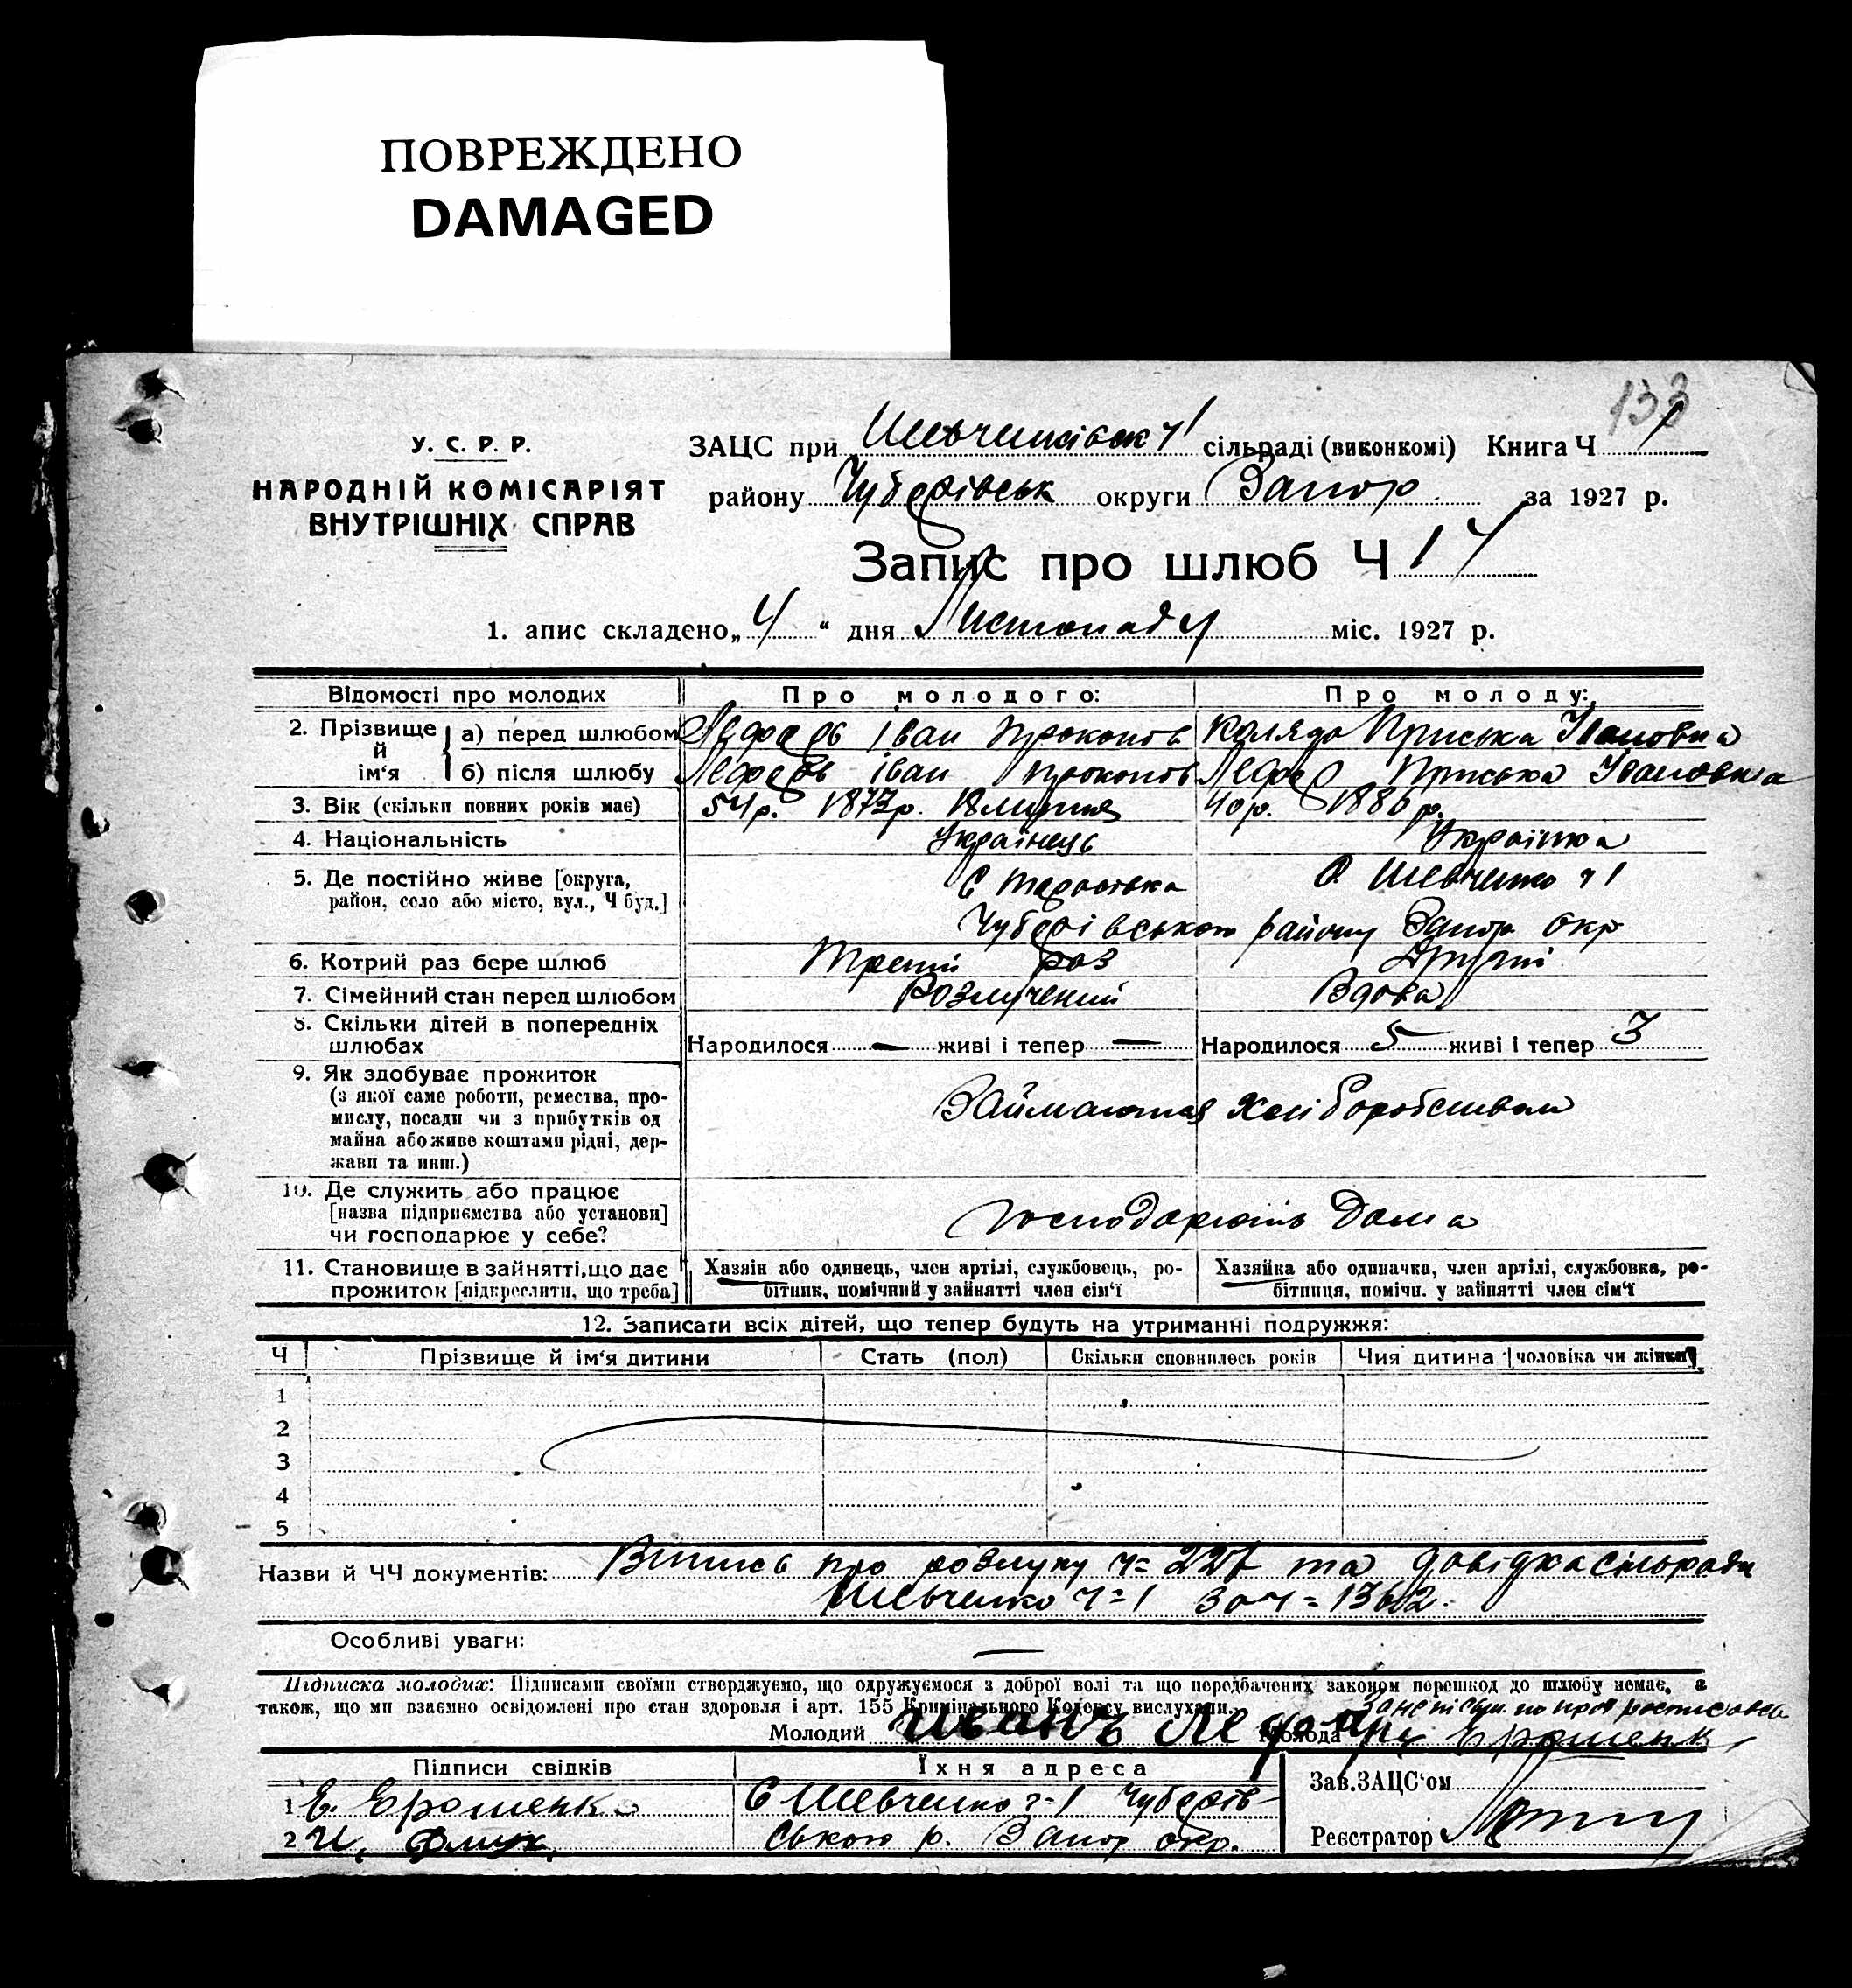 ПОВРЕЖДЕНО
DAMAGED
133
У. С. Р. Р.
НАРОДНІЙ КОМІСАРІЯТ
ВНУТРІШНІХ СПРАВ
ЗАЦС при Шевченківск ч 1 сільраді (виконкомі) Книга Ч 1
району Чубарівськ округи Запор. за 1927 р.
Запис про шлюб Ч 14
1. апис складено „4“ дня Листопаду міс. 1927 р.
Відомості про молодих Про молодого: Про молоду:
2. Прізвище й ім‘я
а) перед шлюбом Іван Прокопов Коляда Приська Івановна
б) після шлюбу Іван Прокопов Приська Івановна
3. Вік (скільки повних років має) 54р. 1873р. 18 липня 40р. 1886 р.
4. Національність Українець Українка
5. Де постійно живе [округа, С. Шевченко ч 1
район, село або місто, вул., Ч буд.] Чубарівського району Запор окр
6. Котрий раз бере шлюб Третій раз Другий
7. Сімейний стан перед шлюбом Розлучений Вдова
8. Скільки дітей в попередніх
шлюбах Народилося — живі і тепер — Народилося 5 живі і тепер 3
9. Як здобуває прожиток
(з якої саме роботи, ремества, про-
мислу, посади чи з прибутків од
майна або живе коштами рідні, дер-
жави та инш.) Займаются хліборобством
10. Де служить або працює
[назва підприємства або установи]
чи господарює у себе? Господарють дома
11. Становище в зайнятті, що дає Хазяін або одинець, член артілі, службовець, ро- Хазяйка або одиначка, член артілі, службовка, ро-
прожиток [підкреслити, що треба] бітник, помічний у зайнятті член сім‘ї бітниця, помічн. у зайнятті член сім‘ї
12. Записати всіх дітей, що тепер будуть на утриманні подружжя:
Ч Прізвище й ім‘я дитини Стать (пол) Скільки сповнилось років Чия дитина чоловіка чи жінки
1
2
3
4
5
Назви й ЧЧ документів: про розлуку ч= 227 та довідка сільради
Шевченко ч=1 за ч= 1362.
Особливі уваги: —
Підписка молодих: Підписами своїми стверджуємо, що одружуємося з доброї волі та що передбачених законом перешкод до шлюбу немає, а
також, що ми взаємно освідомлені про стан здоровля і арт. 155 Кримінального Кодексу вислухали.
Молодий Иванъ Молода Ерошенк
Підписи свідків Їхня адреса Зав. ЗАЦС‘ом
1 Е. Ерошенко С Шевченко ч-1 Чубарів-
2 И. ського р. Запор окр. Реєстратор